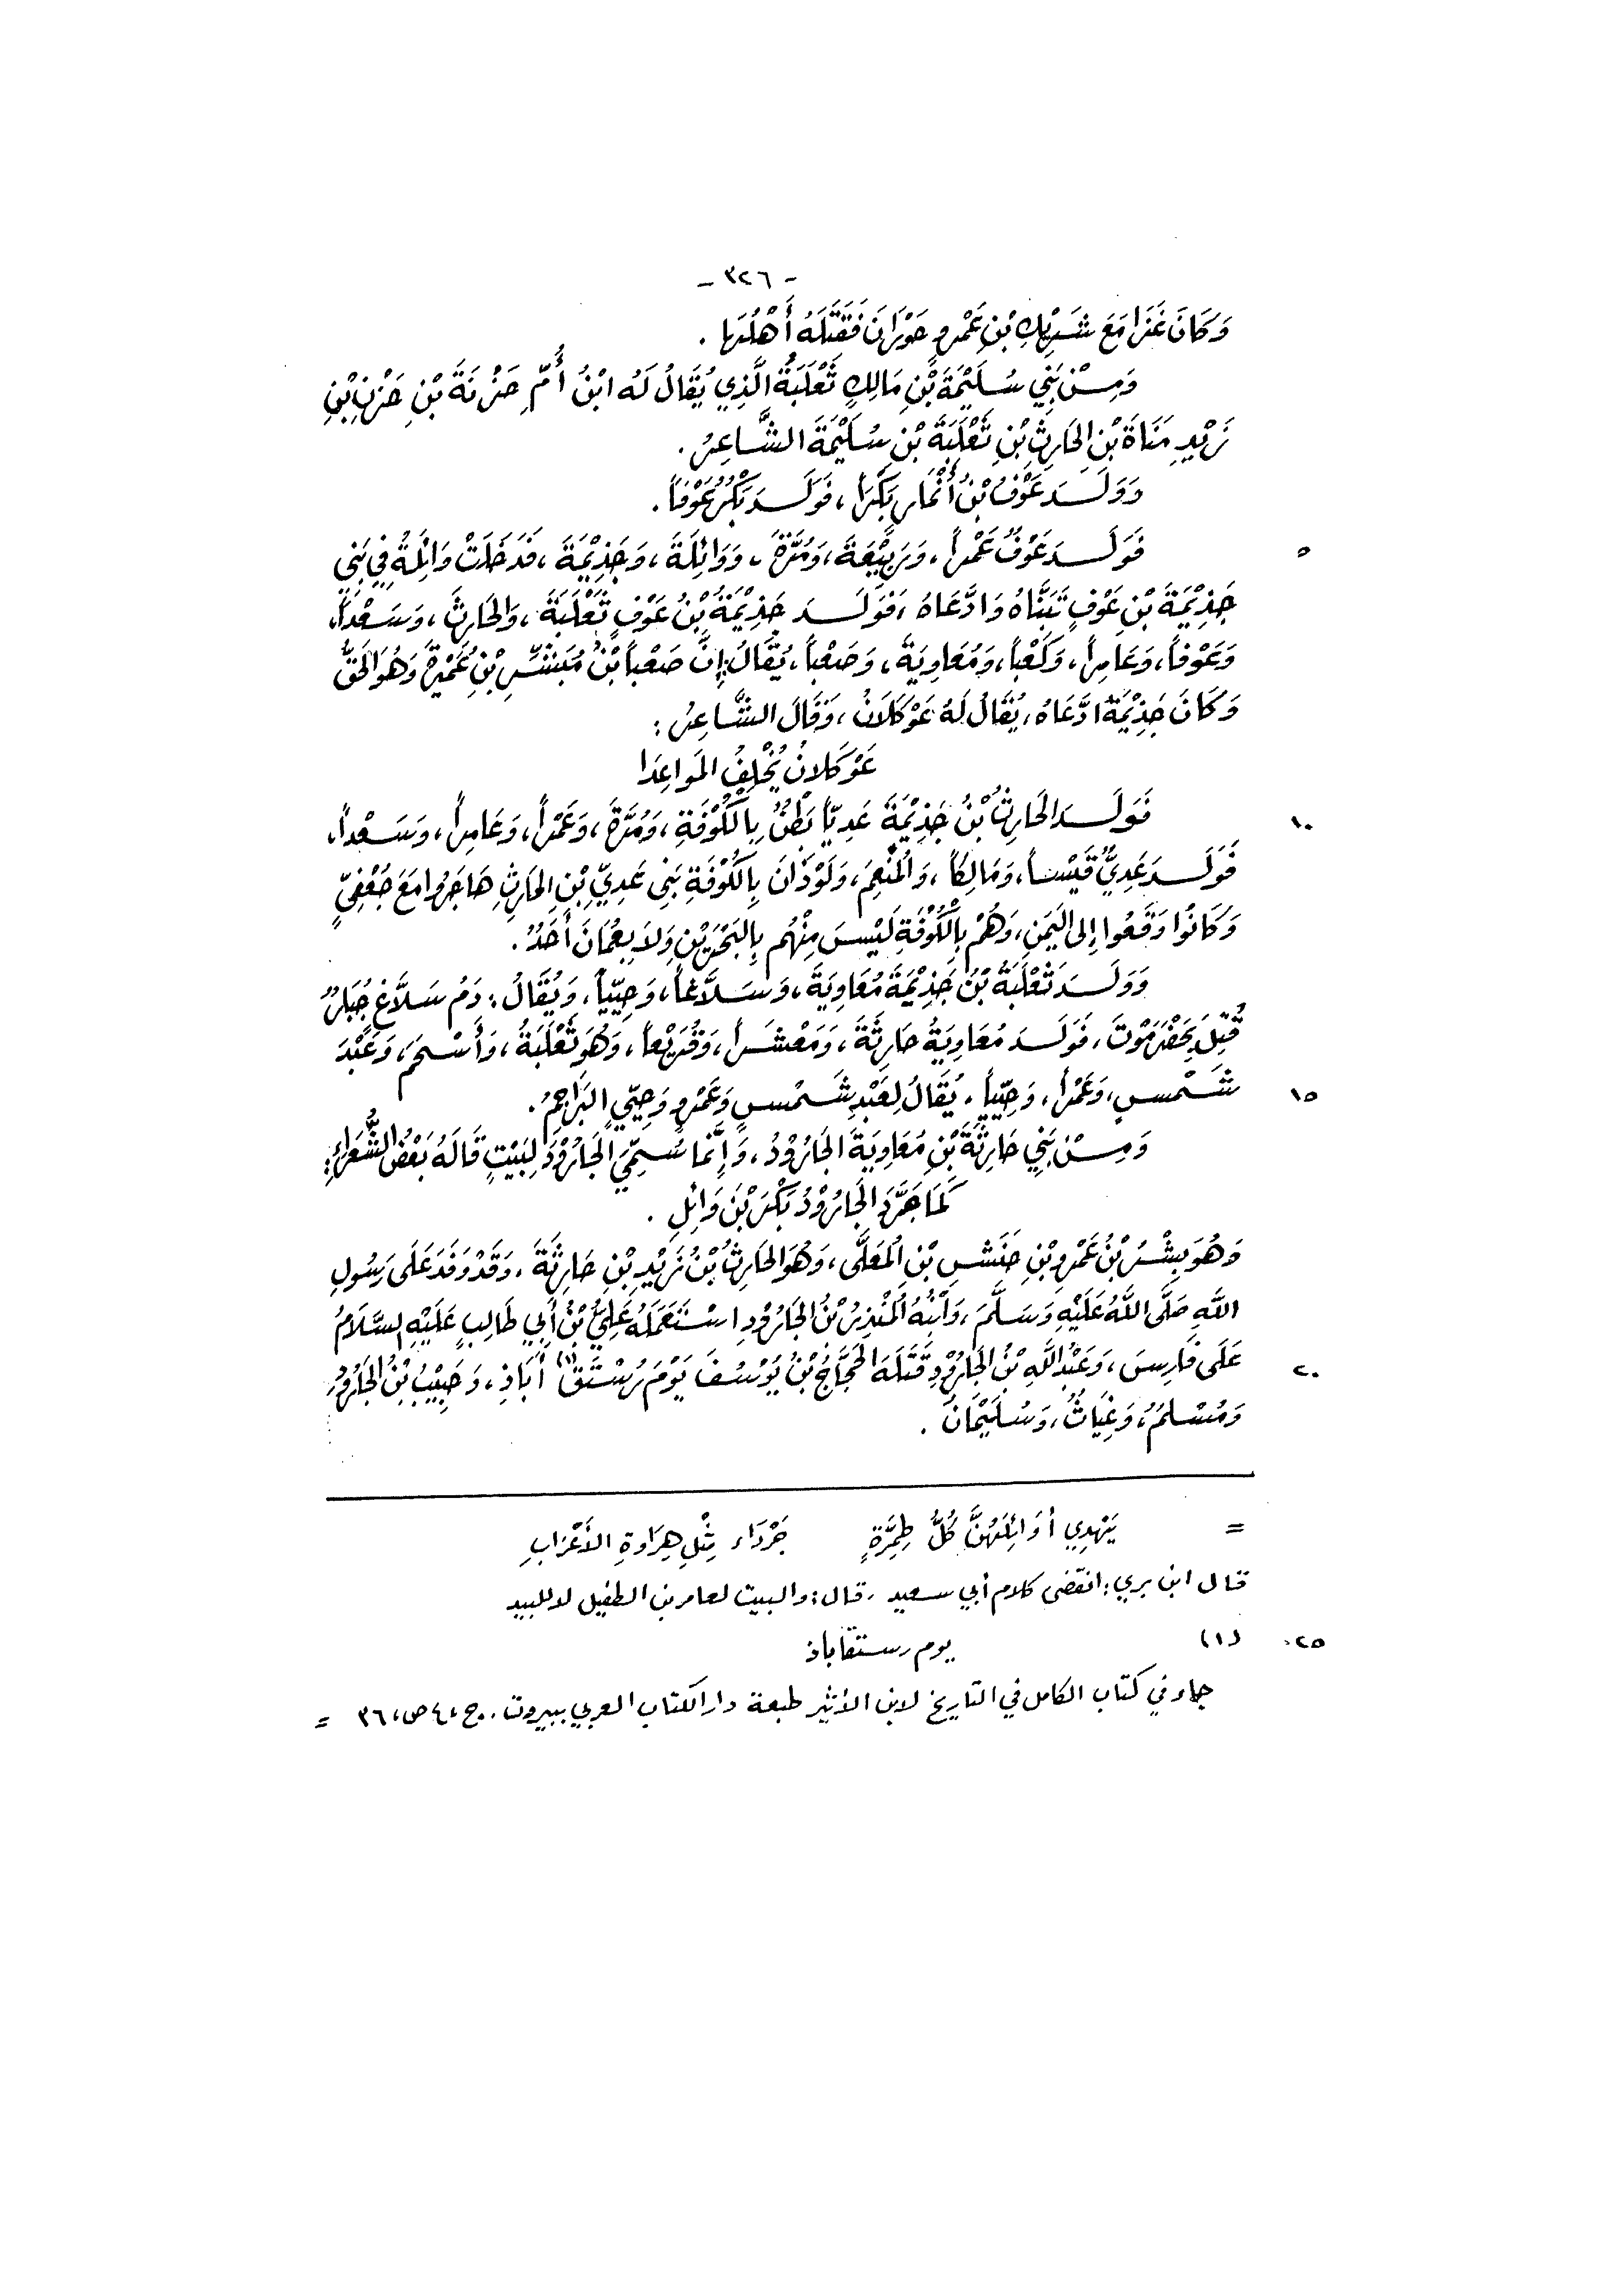 - ٣٢٦ -
وَكَانَ غَزَا مَعَ شَرِيْكِ بْنِ عَمْرٍو حَوْرَانَ فَقَتَلَهُ أَهْلُهَا .
وَمِنْ بَنِي سُلَيْمَةَ بْنِ مَالِكٍ ثَعْلَبَةُ الَّذِي يُقَالُ لَهُ ابْنُ أُمِّ حَزْنَةَ بْنِ حَزْنِ بْنِ
زَيْدِ مَنَاةَ بْنِ الحَارِثِ بْنِ ثَعْلَبَةَ بْنِ سُلَيْمَةَ الشَّاعِرُ .
وَوَلَدَ عَوْفُ بْنُ أَنْمَارٍ بَكْرَاً ، فَوَلَدَ بَكْرٌ عَوْفَاً .
٥ فَوَلَدَ عَوْفٌ عَمْرَاً ، وَرَبِيْعَةَ ، وَمُرَّةَ ، وَوَائِلَةَ ، وَجَذِيْمَةَ ، فَدَخَلَتْ وَائِلَةُ فِي بَنِي
جَذِيْمَةَ بْنِ عَوْفٍ تَبَنَّاهُ وَادَّعَاهُ ، فَوَلَدَ جَذِيْمَةُ بْنُ عَوْفٍ ثَعْلَبَةَ ، وَالحَارِثَ ، وَسَعْدَاً ،
وَعَوْفَاً ، وَعَامِرَاً ، وَكَعْبَاً ، وَمُعَاوِيَةَ ، وَصَعْبَاً ، يُقَالُ : إِنَّ صَعْبَاً بْنُ مُبَشِّرِ بْنِ عَمِيْرَةَ وَهُوَ الحَقُّ
وَكَانَ جَذِيْمَةُ ادَّعَاهُ ، يُقَالُ لَهُ عَوْكَلَانُ ، وَقَالَ الشَّاعِرُ :
عَوْكَلَانُ يُخْلِفُ المَوَاعِدَا
١٠ فَوَلَدَ الحَارِثُ بْنُ جَذِيْمَةَ عَدِيَّاً بَطْنٌ بِالكُوْفَةِ ، وَمُرَّةَ ، وَعَمْرَاً ، وَعَامِرَاً ، وَسَعْدَاً ،
فَوَلَدَ عَدِيٌّ قَيْسَاً ، وَمَالِكَاً ، وَالمُنْعِمَ ، وَلَوْذَانَ بِالكُوْفَةِ بَنِي عَدِيِّ بْنِ الحَارِثِ هَاجَرُوا مَعَ جُعْفِيٍّ
وَكَانُوا وَقَعُوا إِلى اليَمَنِ ، وَهُمْ بِالكُوْفَةِ لَيْسَ مِنْهُم بِالبَحْرَيْنِ وَلَا بِعُمَانَ أَحَدٌ .
وَوَلَدَ ثَعْلَبَةُ بْنُ جَذِيْمَةَ مُعَاوِيَةَ ، وَسَلَّاغَاً ، وَحِيِّيَاً ، وَيُقَالُ : دَمُ سَلَّاغٍ جُبَارٌ
قُتِلَ بِحَضْرَمَوْتَ ، فَوَلَدَ مُعَاوِيَةُ حَارِثَةَ ، وَمَعْشَرَاً ، وَقُرَيْعَاً ، وَهُوَ ثَعْلَبَةُ ، وَأَسْحَمَ ، وَعَبْدَ
١٥ شَمْسٍ ، وَعَمْرَاً ، وَحِيِّيَاً ، يُقَالُ لِعَبْدِ شَمْسٍ وَعَمْرٍو وَحِيِّيٍ البَرَاجِمُ .
وَمِنْ بَنِي حَارِثَةَ بْنِ مُعَاوِيَةَ الجَارُوْدُ ، وَإِنَّمَا سُمِّيَ الجَارُوْدَ لِبَيْتٍ قَالَهُ بَعْضُ الشُّعَرَاءِ :
كَمَا جَرَّدَ الجَارُوْدُ بَكْرَ بْنَ وَائِلِ .
وَهُوَ بِشْرُ بْنُ عَمْرِو بْنِ حَنَشِ بْنِ المُعَلَّى ، وَهُوَ الحَارِثُ بْنُ زَيْدِ بْنِ حَارِثَةَ ، وَقَدْ وَفَدَ عَلَى رَسُولِ
اللَّهِ صَلَّى اللَّهُ عَلَيْهِ وَسَلَّمَ ، وَابْنُهُ المُنْذِرُ بْنُ الجَارُوْدِ اسْتَعْمَلَهُ عَلِيُّ بْنُ أَبِي طَالِبٍ عَلَيْهِ السَّلَامُ
٢٠ عَلَى فَارِسَ ، وَعَبْدُ اللَّهِ بْنُ الجَارُوْدِ قَتَلَهُ الحَجَّاجُ بْنُ يُوْسُفَ يَوْمَ رُسْتَقْ (١) أَبَاذِ ، وَحَبِيْبُ بْنُ الجَارُوْدِ
وَمُسْلِمٌ ، وَغِيَاثٌ ، وَسُلَيْمَانُ .
= يَهْدِي أَوَائِلَهُنَّ كُلُّ طِمِرَّةٍ جَرْدَاءَ مِثْلِ هِرَاوَةِ الأَعْزَابِ
قال ابن بري : انقضى كلام أبي سعيد ، قال : والبيت لعامر بن الطفيل لا للبيد
٢٥ (١) يوم رستقاباذ
جاء في كتاب الكامل في التاريخ لابن الأثير طبعة دار الكتاب العربي ببيروت . ج ، ٤ ص ، ٣٦ =